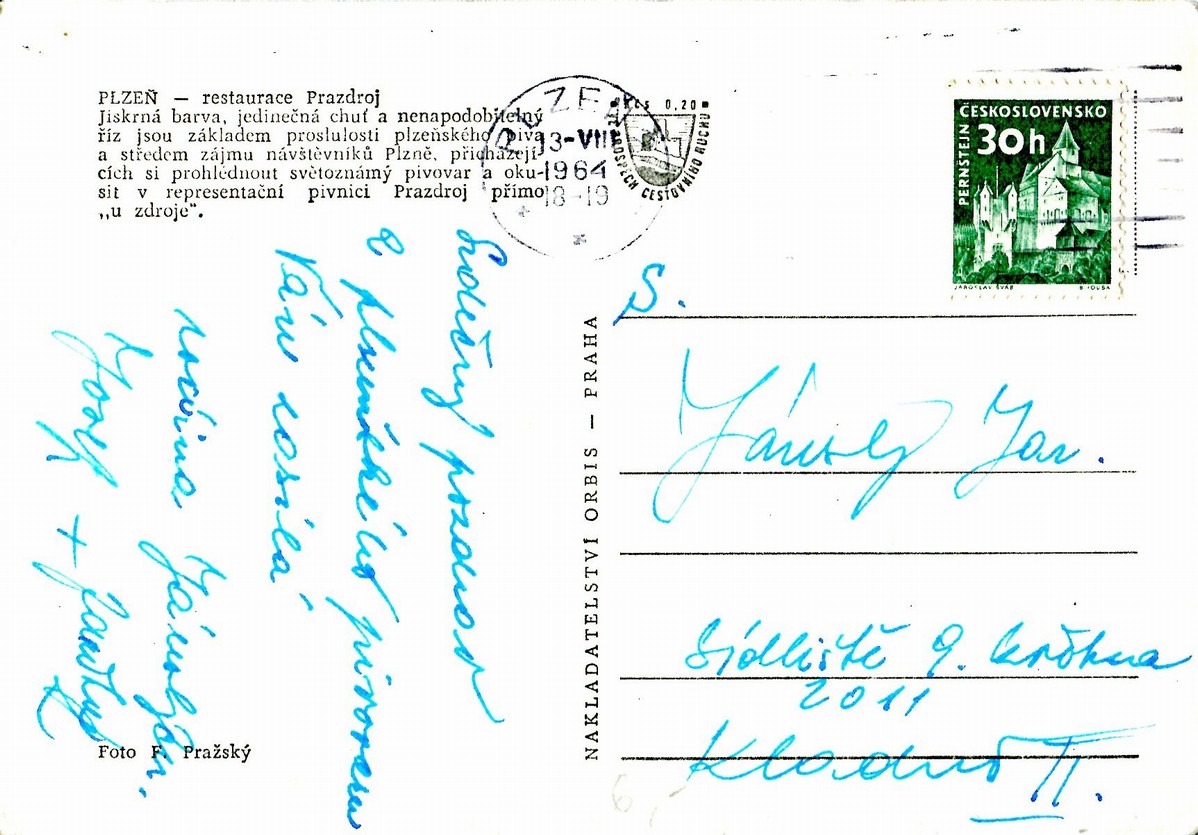 PLZEŇ — restaurace Prazdroj
Jiskrná barva, jedinečná chuť a nenapodobitelný
říz jsou základem proslulosti plzeňského piva
a středem zájmu návštěvníků Plzně, přicházejí-
cích si prohlédnout světoznámý pivovar a oku-
sit v representační pivnici Prazdroj přímo
„u zdroje“.
PLZEŇ
13-VIII
1964
18-19
Kčs 0,20
VE PROSPĚCH CESTOVNÍHO RUCHU
ČESKOSLOVENSKO
30h
PERNŠTEJN
JAROSLAV ŠVÁB
Srdečný pozdrav
z plzeňského pivovaru
Vám posílá
rodina
Josef +
Foto F. Pražský
NAKLADATELSTVÍ ORBIS — PRAHA
S.
Jar.
Sídliště 9. května
2011
Kladno II.